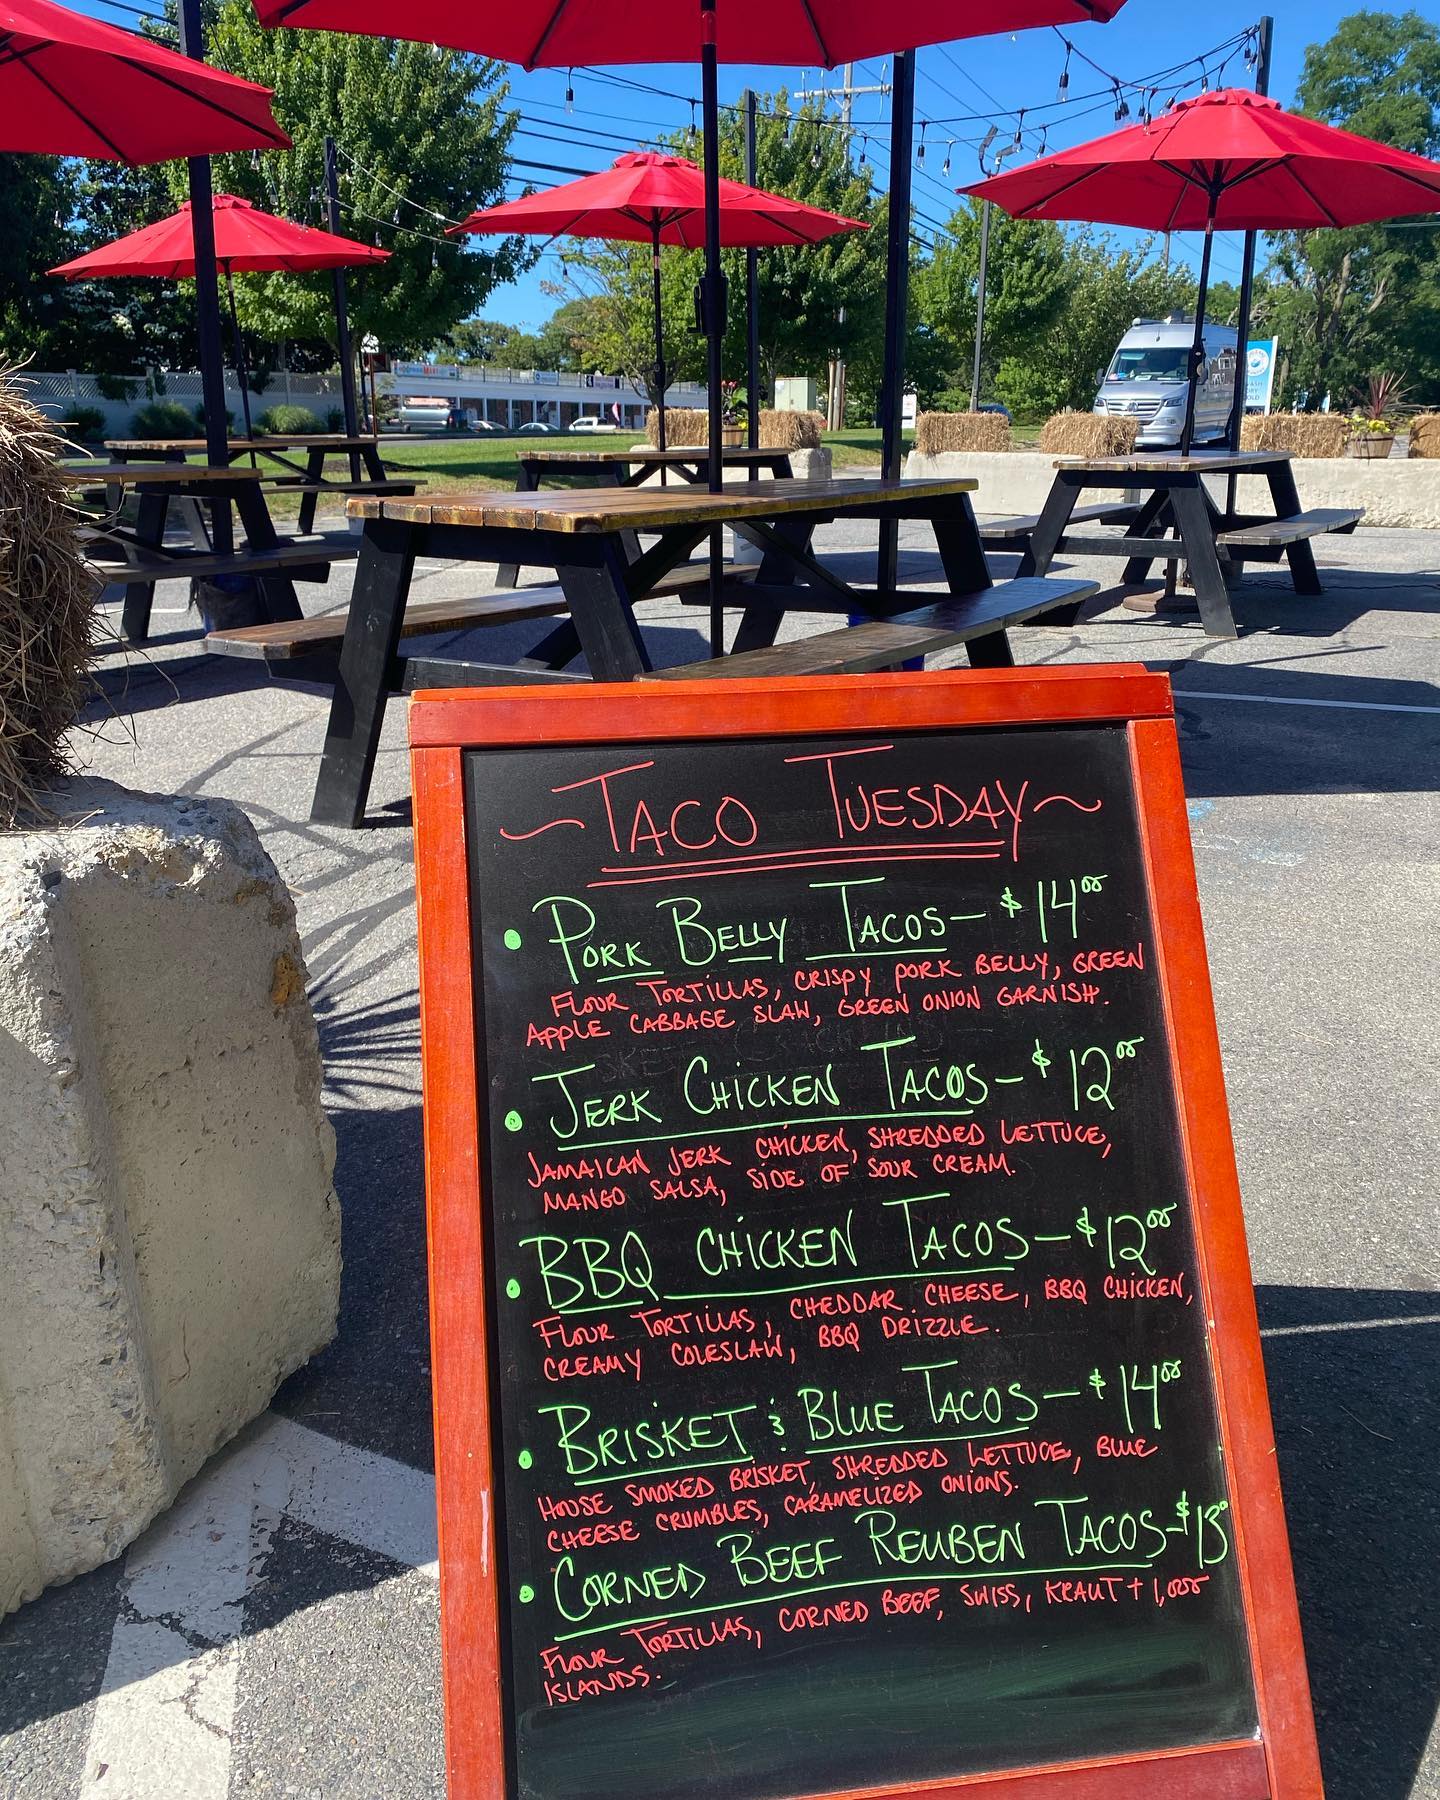 ~TACO TUESDAY~
• PORK BELLY TACOS - $14.00
FLOUR TORTILLAS, CRISPY PORK BELLY, GREEN
APPLE CABBAGE SLAW, GREEN ONION GARNISH.
• JERK CHICKEN TACOS - $12.00
JAMAICAN JERK CHICKEN, SHREDDED LETTUCE,
MANGO SALSA, SIDE OF SOUR CREAM.
• BBQ CHICKEN TACOS - $12.00
FLOUR TORTILLAS, CHEDDAR CHEESE, BBQ CHICKEN,
CREAMY COLESLAW, BBQ DRIZZLE.
• BRISKET & BLUE TACOS - $14.00
HOUSE SMOKED BRISKET, SHREDDED LETTUCE, BLUE
CHEESE CRUMBLES, CARAMELIZED ONIONS.
• CORNED BEEF REUBEN TACOS - $13
FLOUR TORTILLAS, CORNED BEEF, SWISS, KRAUT + 1,000
ISLANDS.